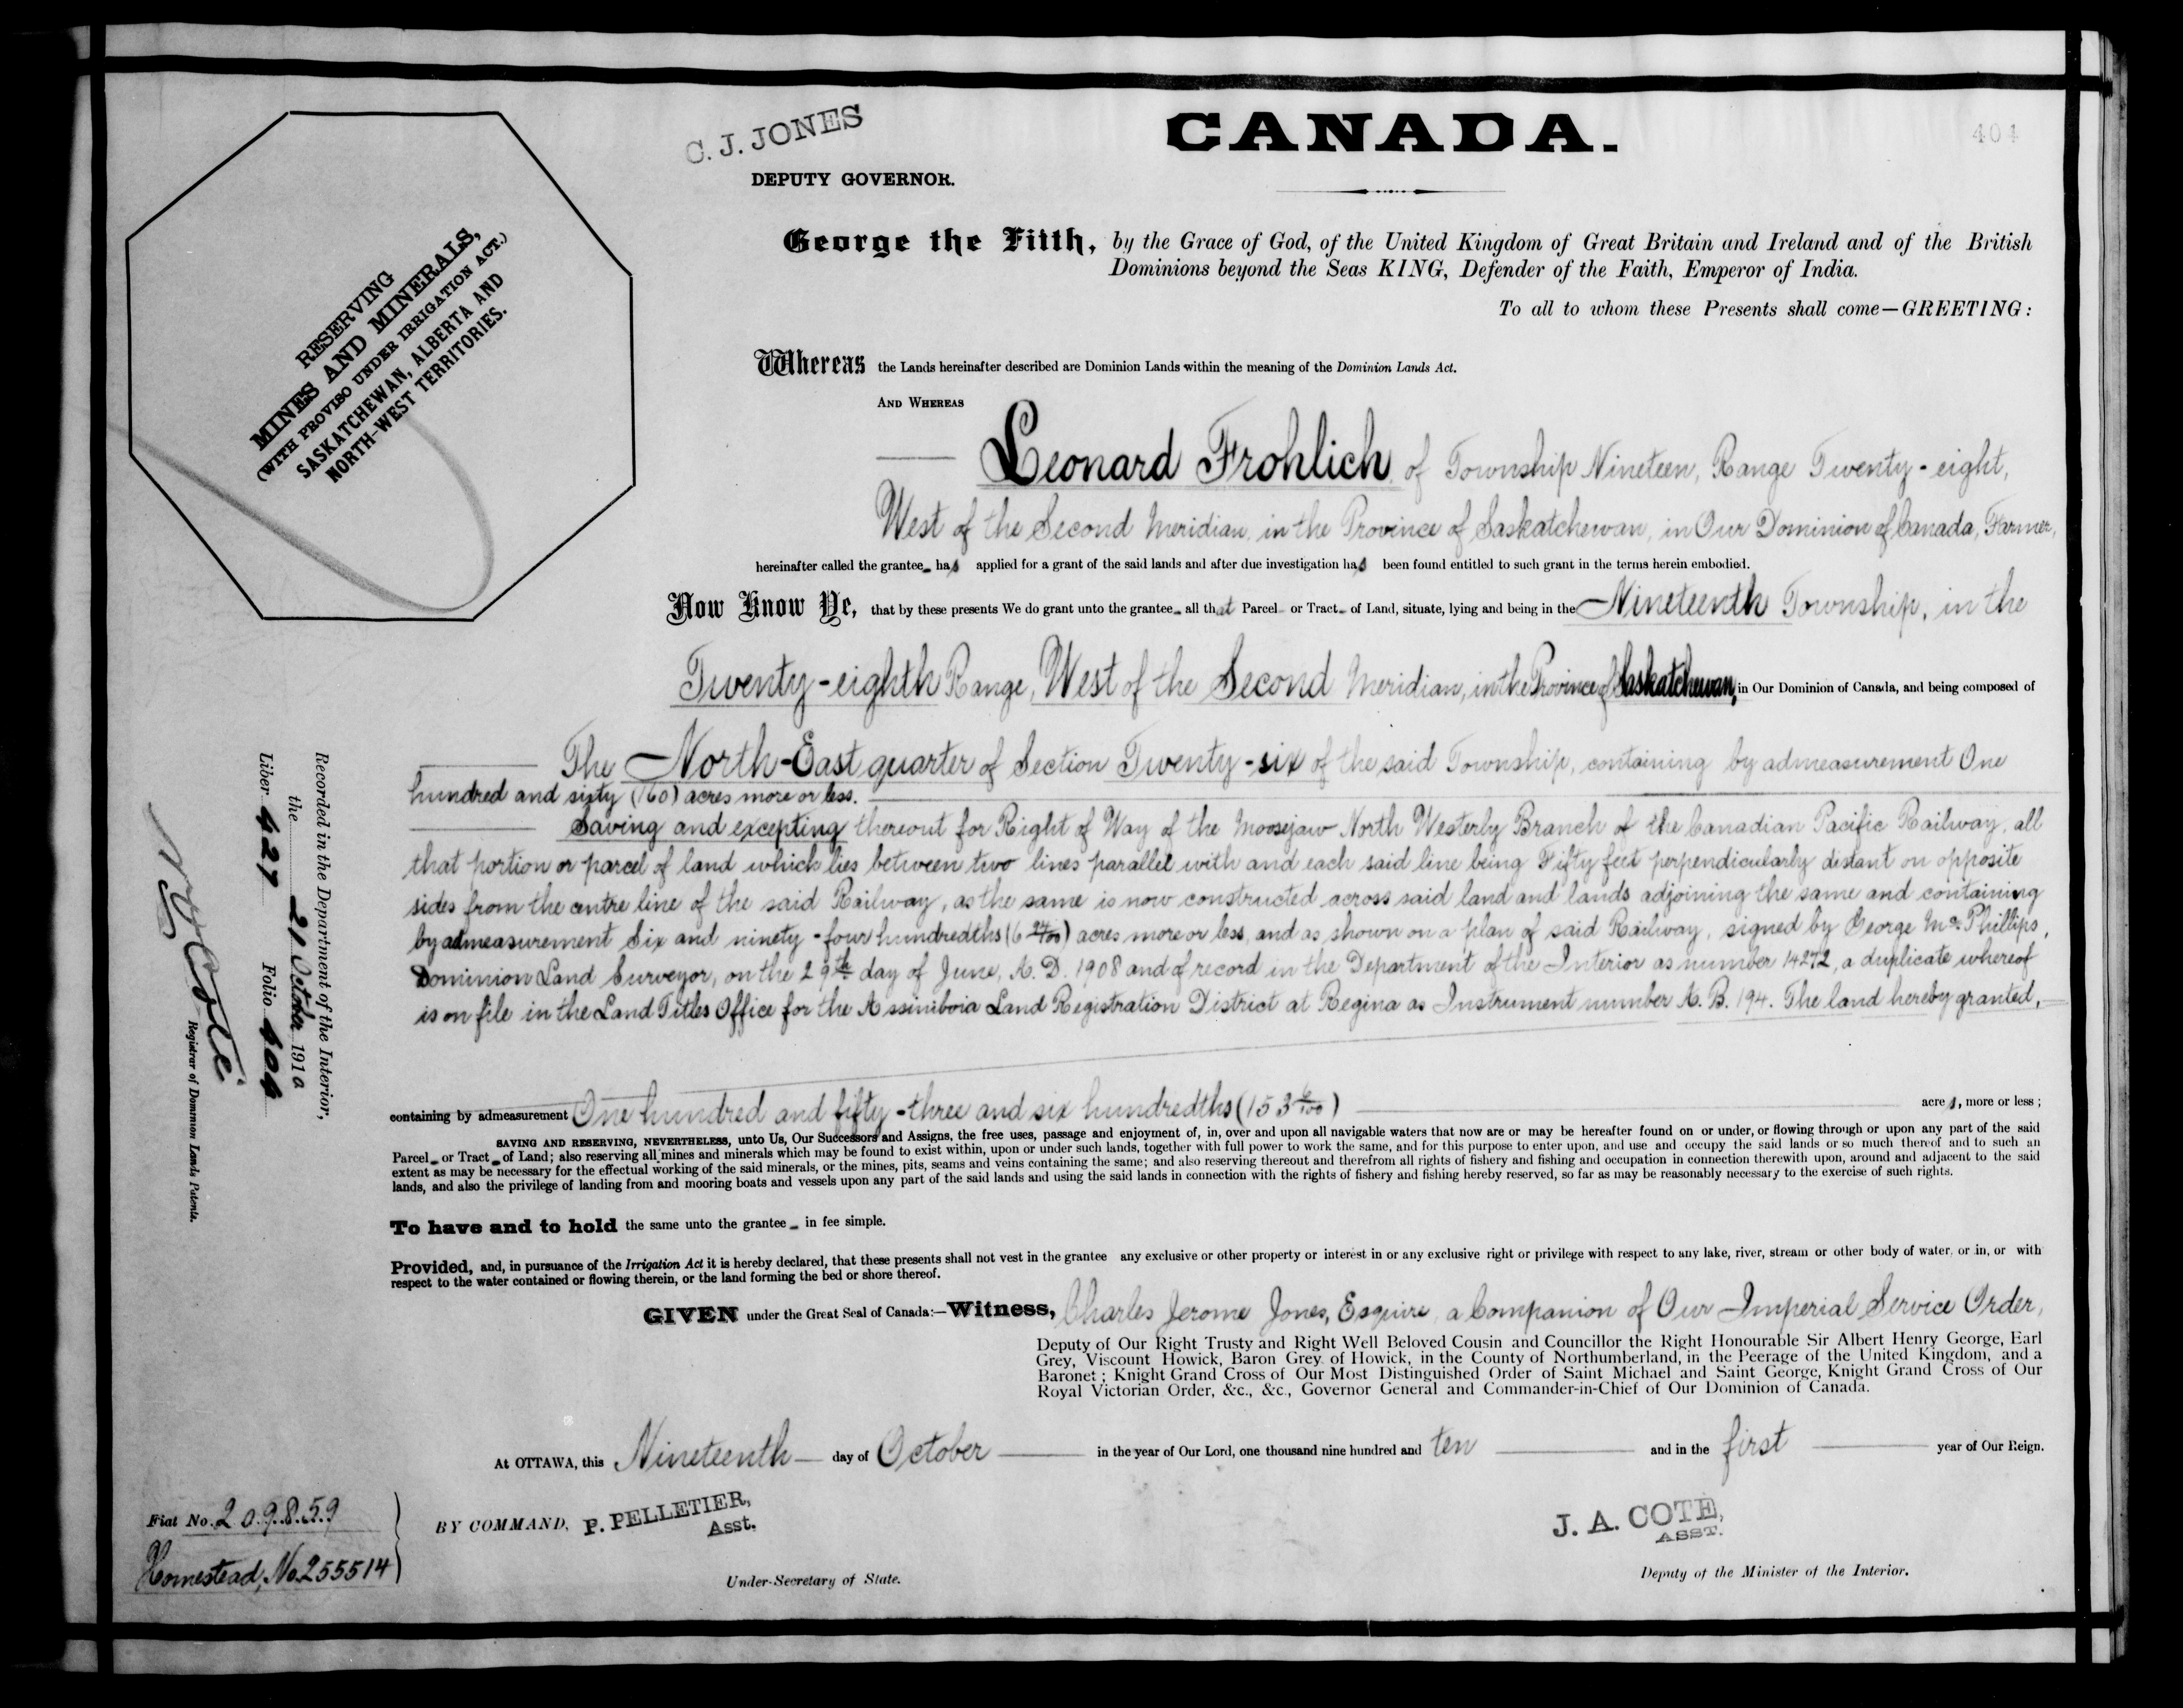 C. J. JONES
DEPUTY GOVERNOR.
CANADA.
404
RESERVING
MINES AND MINERALS,
(WITH PROVISO UNDER IRRIGATION ACT.)
SASKATCHEWAN, ALBERTA AND
NORTH-WEST TERRITORIES.
George the Fifth, by the Grace of God, of the United Kingdom of Great Britain and Ireland and of the British
Dominions beyond the Seas KING, Defender of the Faith, Emperor of India.
To all to whom these Presents shall come—GREETING:
Whereas the Lands hereinafter described are Dominion Lands within the meaning of the Dominion Lands Act.
AND WHEREAS
Leonard Frohlich, of Township Nineteen, Range Twenty-eight,
West of the Second Meridian, in the Province of Saskatchewan, in Our Dominion of Canada, Farmer,
hereinafter called the grantee has applied for a grant of the said lands and after due investigation has been found entitled to such grant in the terms herein embodied.
Now Know Ye, that by these presents We do grant unto the grantee all that Parcel or Tract of Land, situate, lying and being in the Nineteenth Township, in the
Twenty-eighth Range, West of the Second Meridian, in the Province of Saskatchewan, in Our Dominion of Canada, and being composed of
The North-East quarter of Section Twenty-six of the said Township, containing by admeasurement One
hundred and sixty (160) acres more or less.
Saving and excepting thereout for Right of Way of the Moosejaw North Westerly Branch of the Canadian Pacific Railway, all
that portion or parcel of land which lies between two lines parallel with and each said line being Fifty feet perpendicularly distant on opposite
sides from the centre line of the said Railway, as the same is now constructed across said land and lands adjoining the same and containing
by admeasurement Six and ninety-four hundredths (6 94/100) acres more or less, and as shown on a plan of said Railway, signed by George Mc. Phillips,
Dominion Land Surveyor, on the 29th day of June, A. D. 1908 and of record in the Department of the Interior as number 14272, a duplicate whereof
is on file in the Land Titles Office for the Assiniboia Land Registration District at Regina as Instrument number A. B. 194. The land hereby granted,
containing by admeasurement One hundred and fifty-three and six hundredths (153 6/100) acres, more or less;
SAVING AND RESERVING, NEVERTHELESS, unto Us, Our Successors and Assigns, the free uses, passage and enjoyment of, in, over and upon all navigable waters that now are or may be hereafter found on or under, or flowing through or upon any part of the said
Parcel or Tract of Land; also reserving all mines and minerals which may be found to exist within, upon or under such lands, together with full power to work the same, and for this purpose to enter upon, and use and occupy the said lands or so much thereof and to such an
extent as may be necessary for the effectual working of the said minerals, or the mines, pits, seams and veins containing the same; and also reserving thereout and therefrom all rights of fishery and fishing and occupation in connection therewith upon, around and adjacent to the said
lands, and also the privilege of landing from and mooring boats and vessels upon any part of the said lands and using the said lands in connection with the rights of fishery and fishing hereby reserved, so far as may be reasonably necessary to the exercise of such rights.
To have and to hold the same unto the grantee in fee simple.
Provided, and, in pursuance of the Irrigation Act it is hereby declared, that these presents shall not vest in the grantee any exclusive or other property or interest in or any exclusive right or privilege with respect to any lake, river, stream or other body of water, or in, or with
respect to the water contained or flowing therein, or the land forming the bed or shore thereof.
GIVEN under the Great Seal of Canada:—Witness, Charles Jerome Jones, Esquire, a Companion of Our Imperial Service Order,
Deputy of Our Right Trusty and Right Well Beloved Cousin and Councillor the Right Honourable Sir Albert Henry George, Earl
Grey, Viscount Howick, Baron Grey of Howick, in the County of Northumberland, in the Peerage of the United Kingdom, and a
Baronet; Knight Grand Cross of Our Most Distinguished Order of Saint Michael and Saint George, Knight Grand Cross of Our
Royal Victorian Order, &c., &c., Governor General and Commander-in-Chief of Our Dominion of Canada.
At OTTAWA, this Nineteenth day of October in the year of Our Lord, one thousand nine hundred and ten and in the first year of Our Reign.
BY COMMAND, P. PELLETIER,
Asst.
Under-Secretary of State.
J. A. COTE,
ASST.
Deputy of the Minister of the Interior.
Fiat No. 209859
Homestead, No. 255514
Recorded in the Department of the Interior,
the 21 October 1910
Liber 427 Folio 404
Coté
Registrar of Dominion Lands Patents.